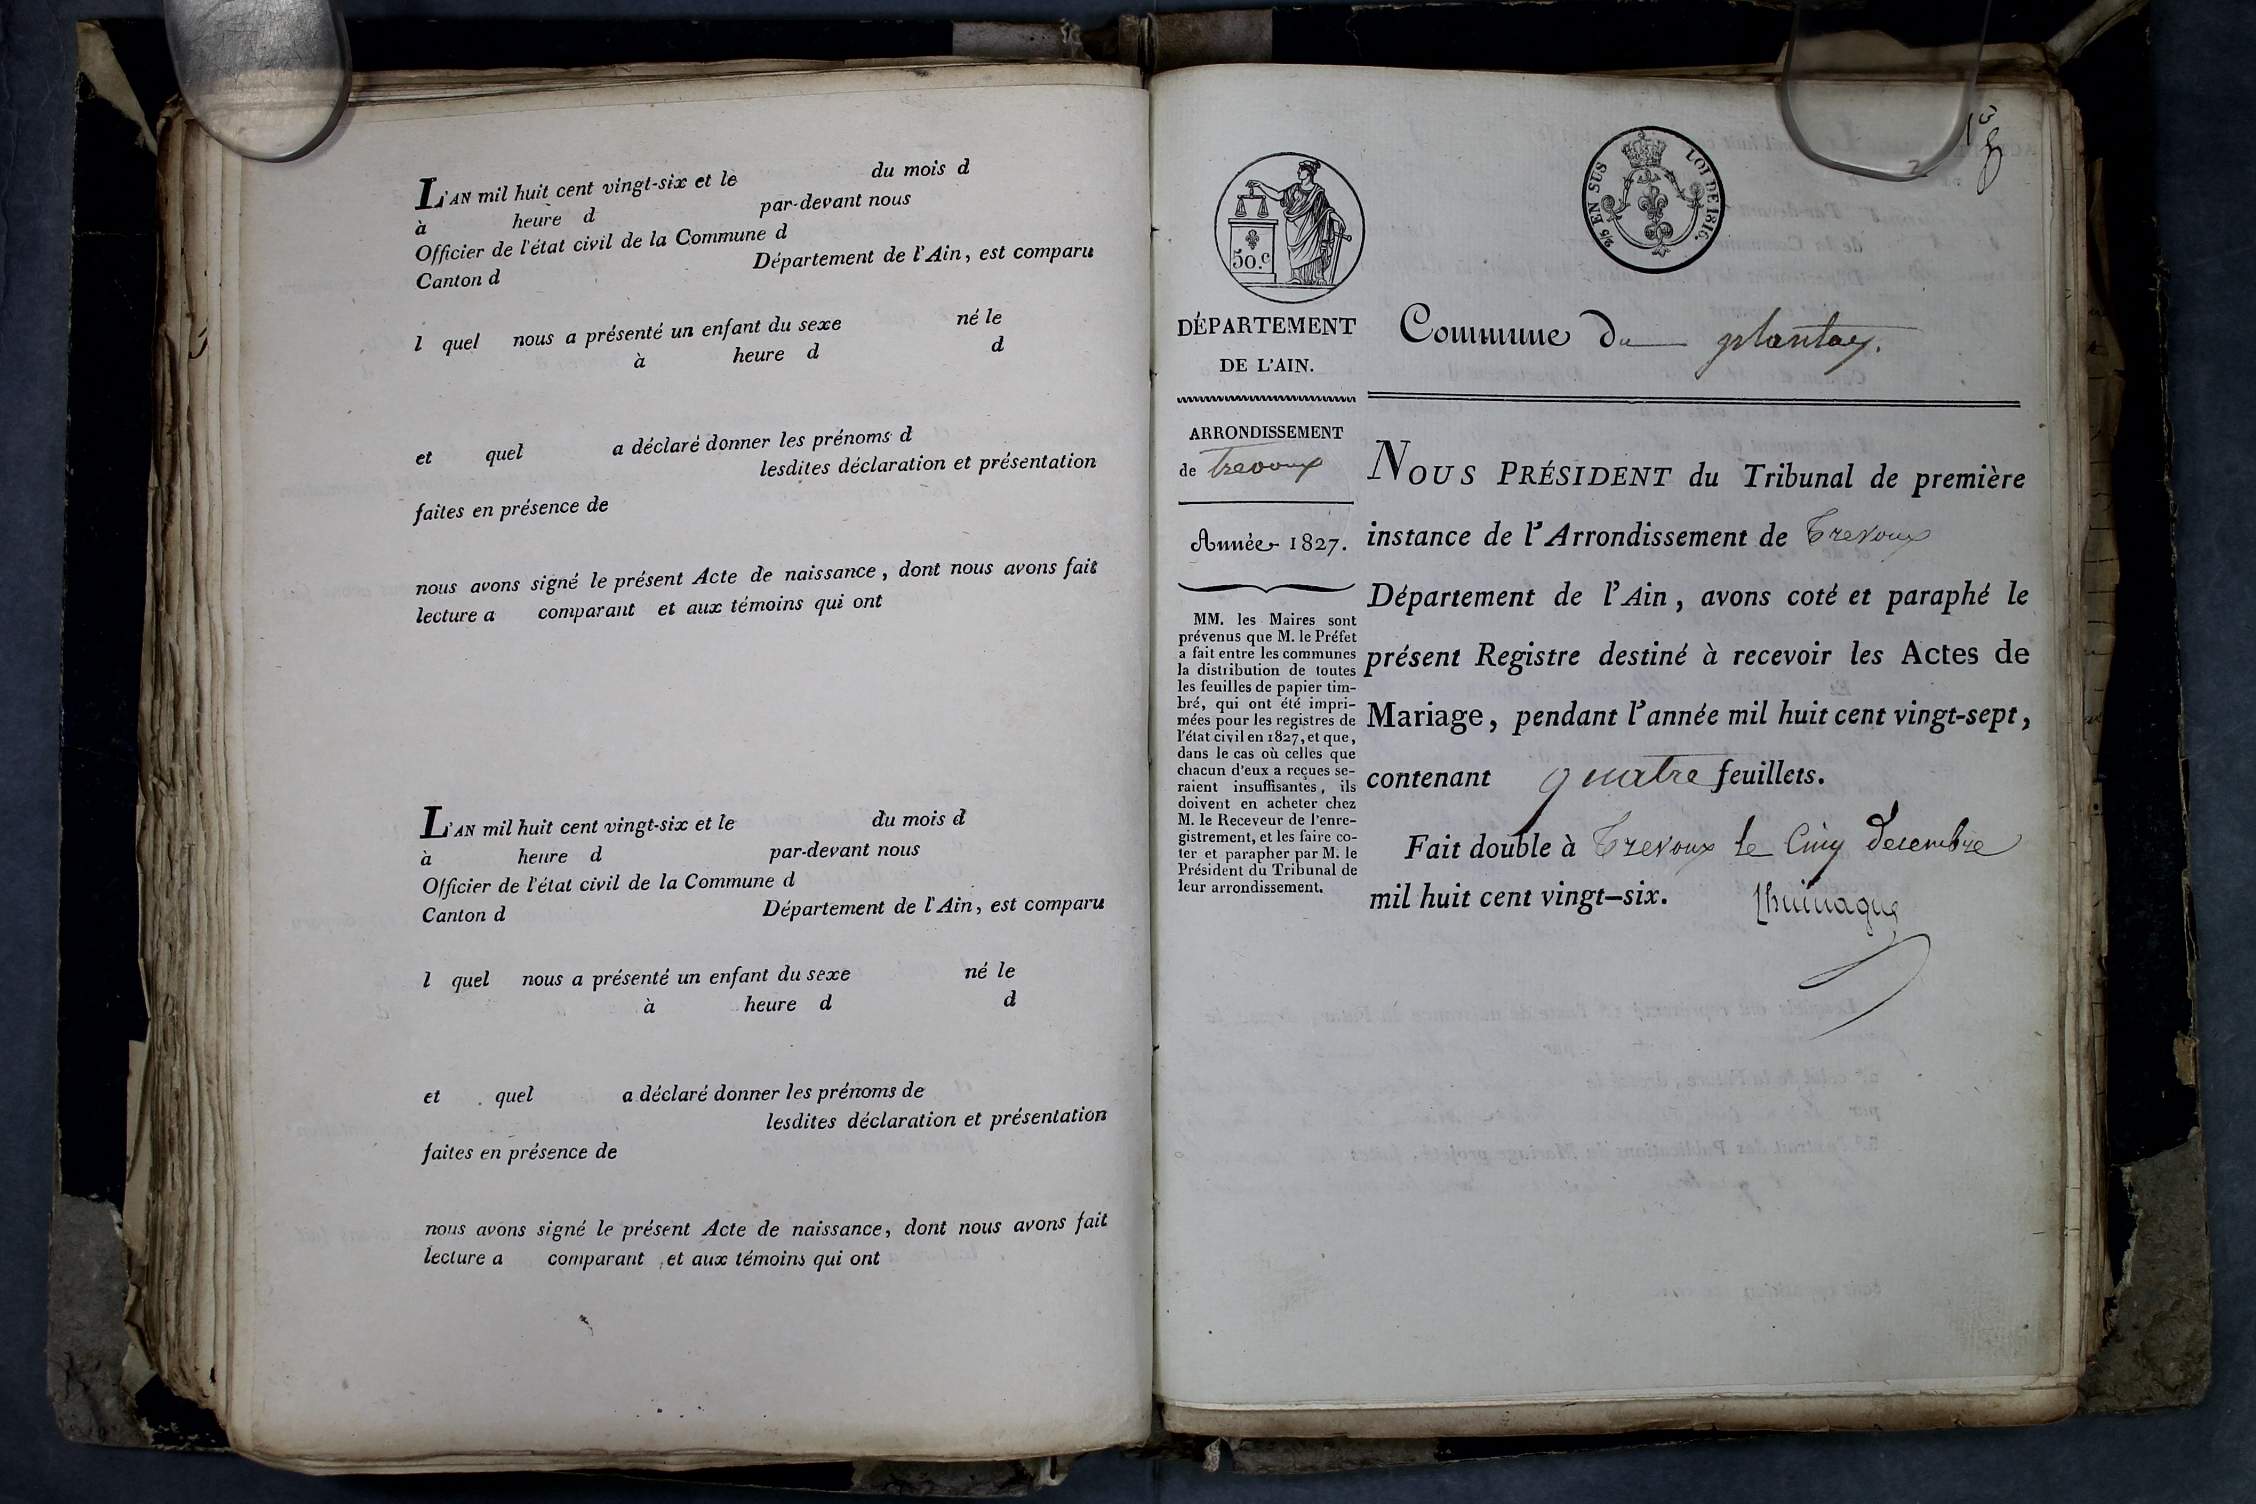 L'AN mil huit cent vingt-six et le du mois d
à heure d par-devant nous
Officier de l'état civil de la Commune d
Canton d Département de l'Ain, est comparu
l quel nous a présenté un enfant du sexe né le
à heure d d
et quel a déclaré donner les prénoms d
lesdites déclaration et présentation
faites en présence de
nous avons signé le présent Acte de naissance, dont nous avons fait
lecture a comparant et aux témoins qui ont
L'AN mil huit cent vingt-six et le du mois d
à heure d par-devant nous
Officier de l'état civil de la Commune d
Canton d Département de l'Ain, est comparu
l quel nous a présenté un enfant du sexe né le
à heure d d
et quel a déclaré donner les prénoms de
lesdites déclaration et présentation
faites en présence de
nous avons signé le présent Acte de naissance, dont nous avons fait
lecture a comparant et aux témoins qui ont
50.c
EN SUS LOI DE 1816.
DÉPARTEMENT
DE L'AIN.
ARRONDISSEMENT
de Trevoux
Année 1827.
MM. les Maires sont
prévenus que M. le Préfet
a fait entre les communes
la distribution de toutes
les feuilles de papier tim-
bré, qui ont été impri-
mées pour les registres de
l'état civil en 1827, et que,
dans le cas où celles que
chacun d'eux a reçues se-
raient insuffisantes, ils
doivent en acheter chez
M. le Receveur de l'enre-
gistrement, et les faire co-
ter et parapher par M. le
Président du Tribunal de
leur arrondissement.
Commune Du plantay.
NOUS PRÉSIDENT du Tribunal de première
instance de l'Arrondissement de Trevoux
Département de l'Ain, avons coté et paraphé le
présent Registre destiné à recevoir les Actes de
Mariage, pendant l'année mil huit cent vingt-sept,
contenant quatre feuillets.
Fait double à Trevoux le Cinq decembre
mil huit cent vingt-six.